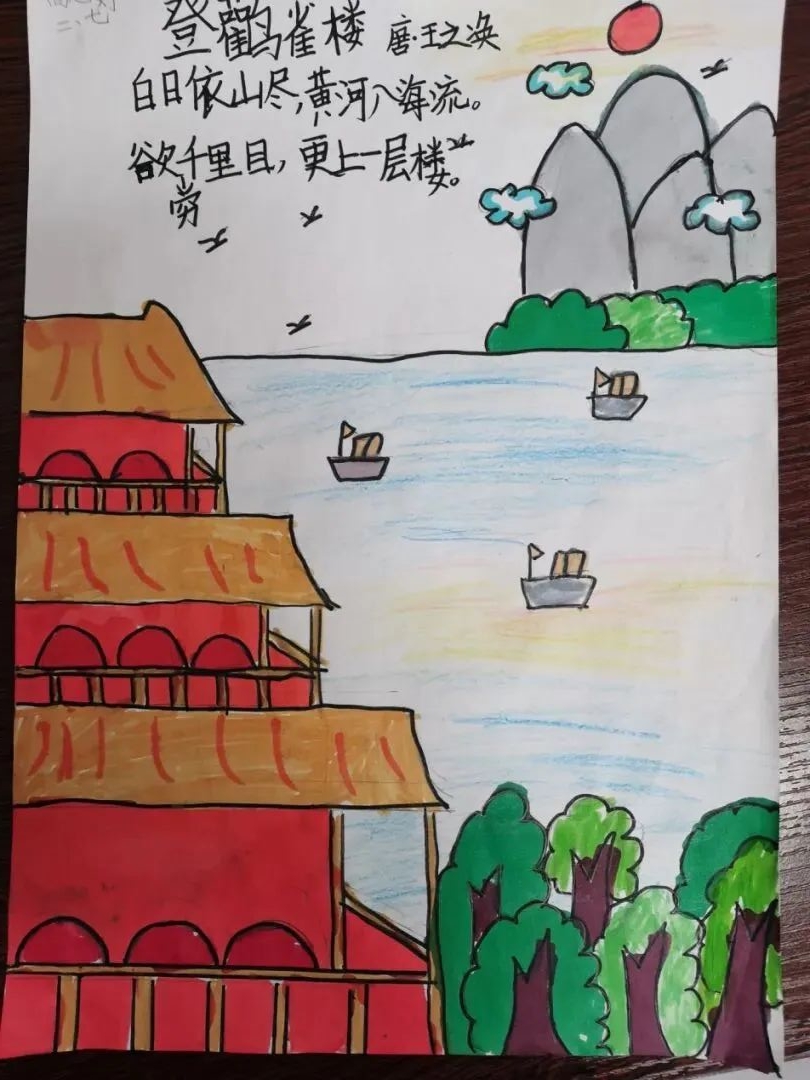 登鹳雀楼 唐·王之涣
白日依山尽,黄河入海流。
欲千里目,更上一层楼。
穷
二、七